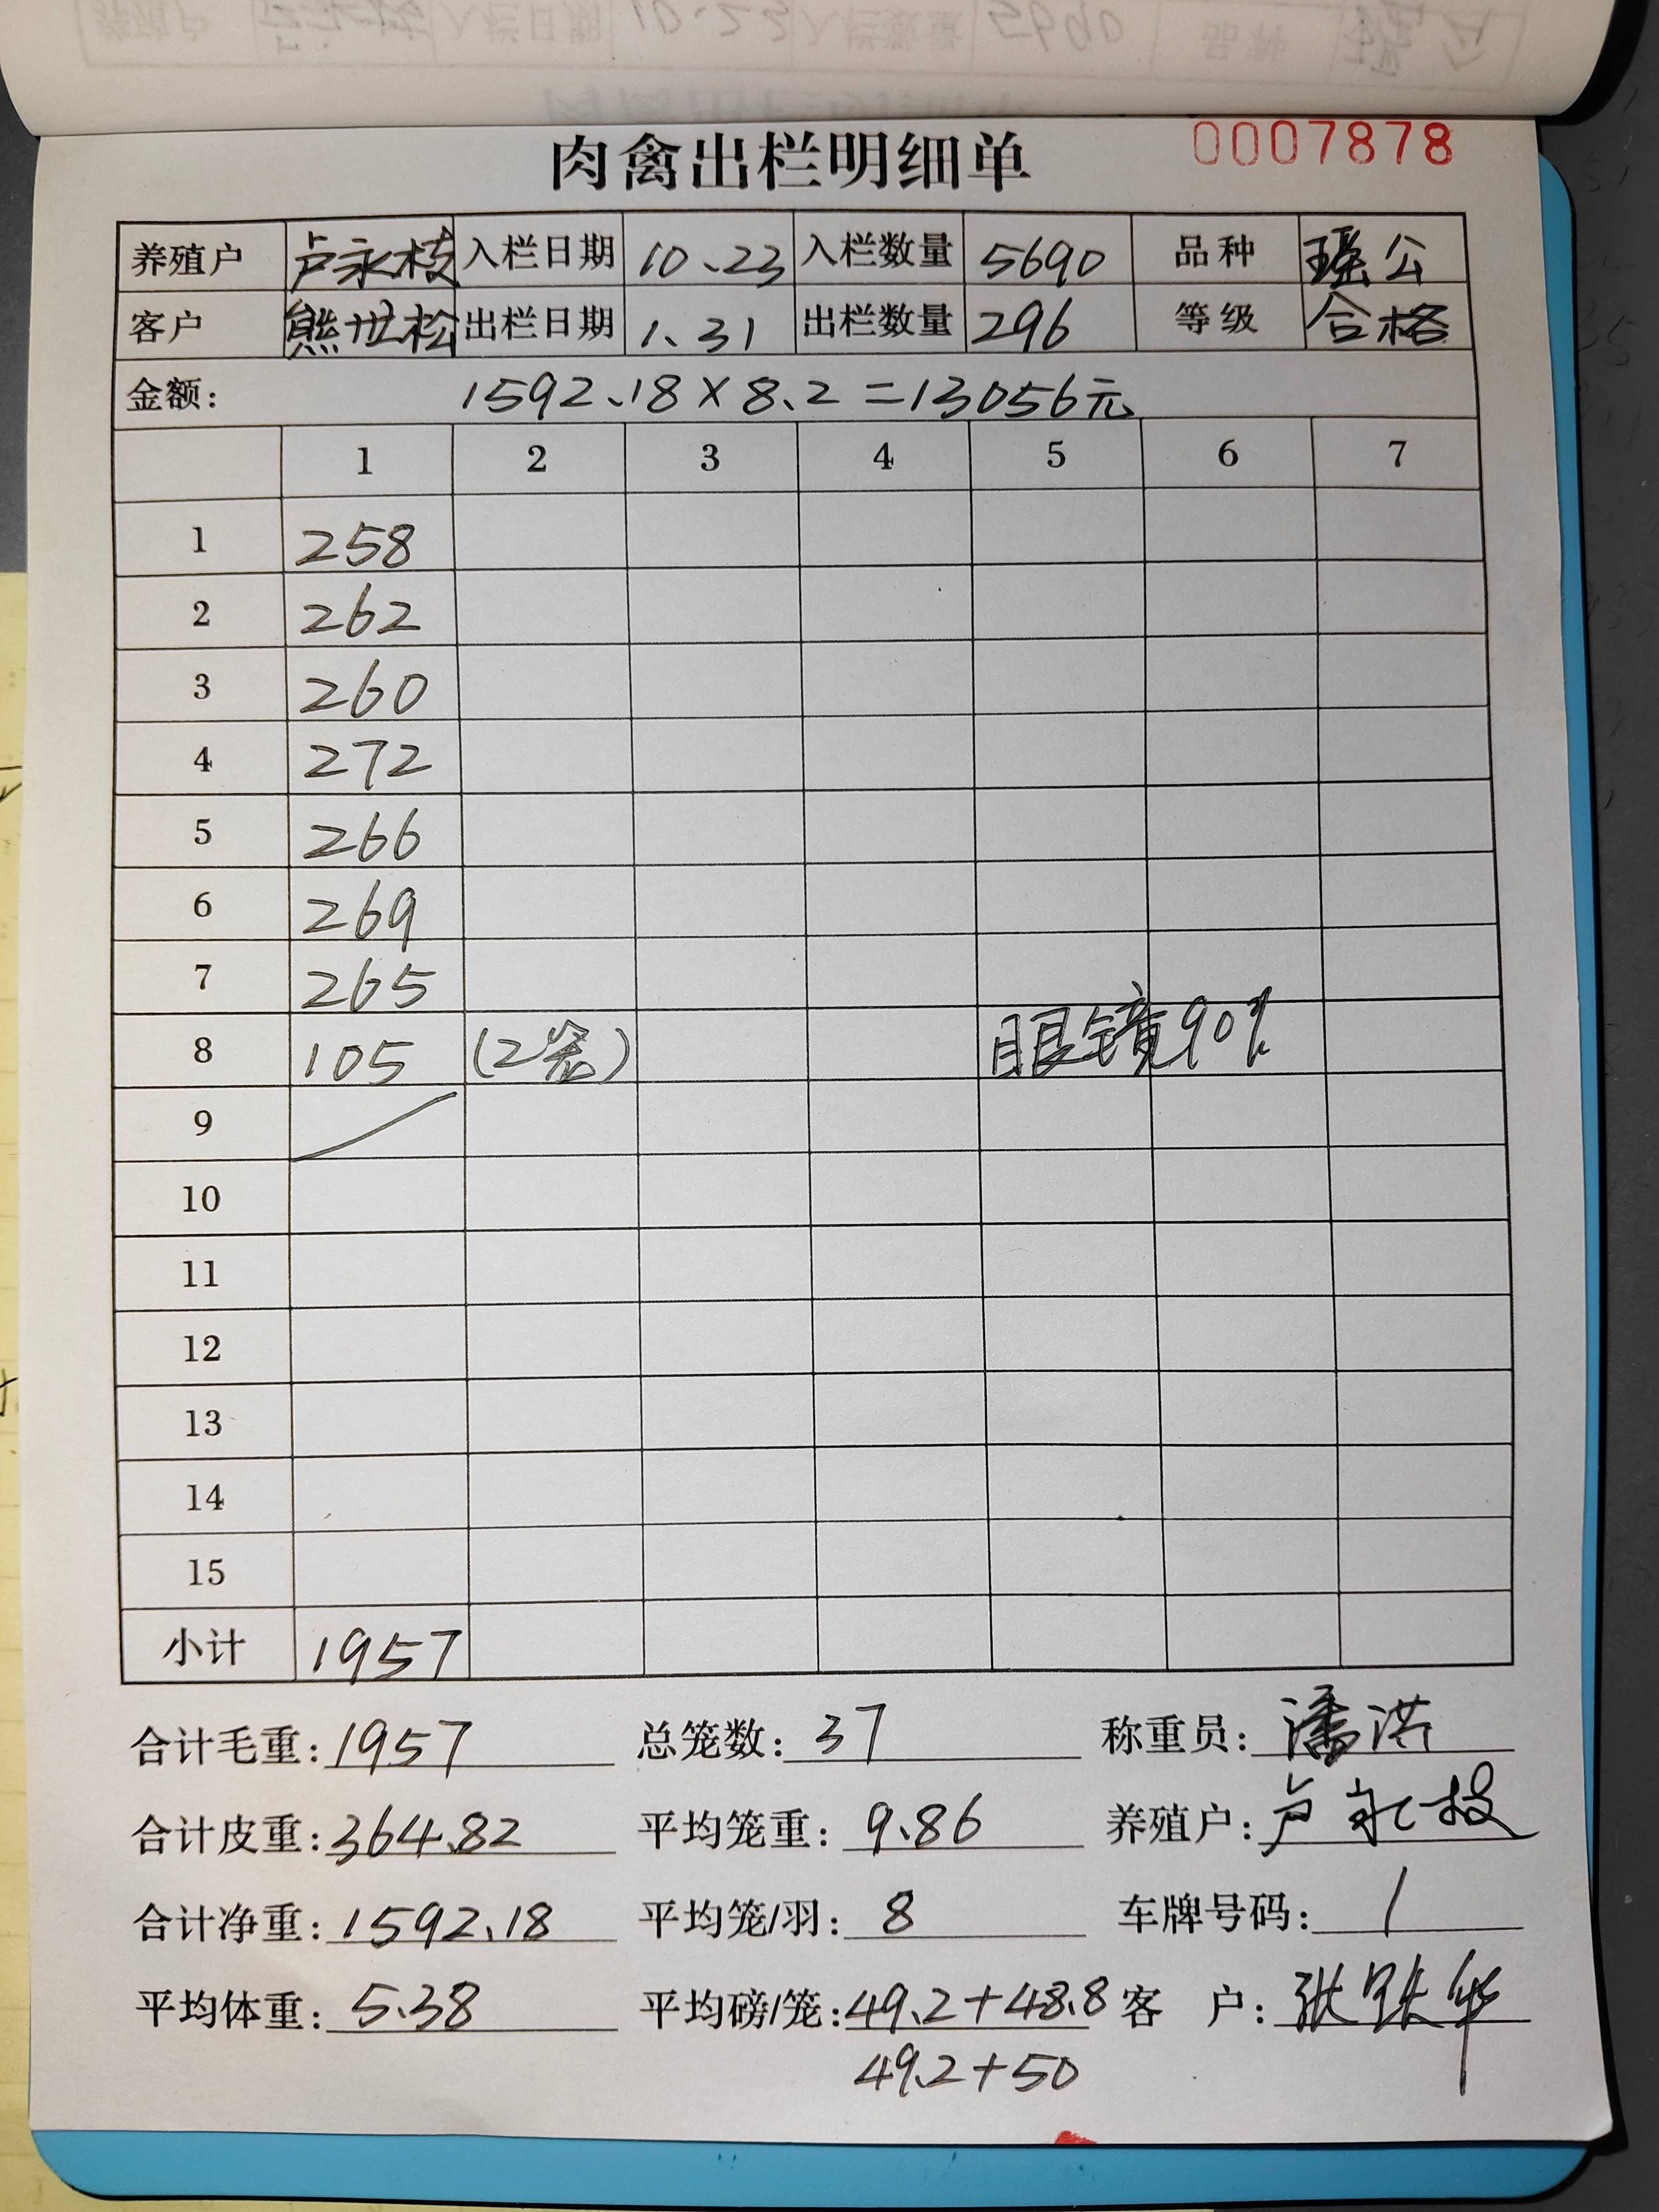 肉禽出栏明细单 0007878
养殖户 卢永枝 入栏日期 10.23 入栏数量 5690 品种 瑶公
客户 熊世松 出栏日期 1.31 出栏数量 296 等级 合格
金额: 1592.18×8.2=13056元
1 2 3 4 5 6 7
1 258
2 262
3 260
4 272
5 266
6 269
7 265
8 105 (2笼) 眼镜90%
9
10
11
12
13
14
15
小计 1957
合计毛重:1957 总笼数:37 称重员:潘洪
合计皮重:364.82 平均笼重:9.86 养殖户:卢永枝
合计净重:1592.18 平均笼/羽:8 车牌号码:/
平均体重:5.38 平均磅/笼:49.2+48.8 客户:张
49.2+50